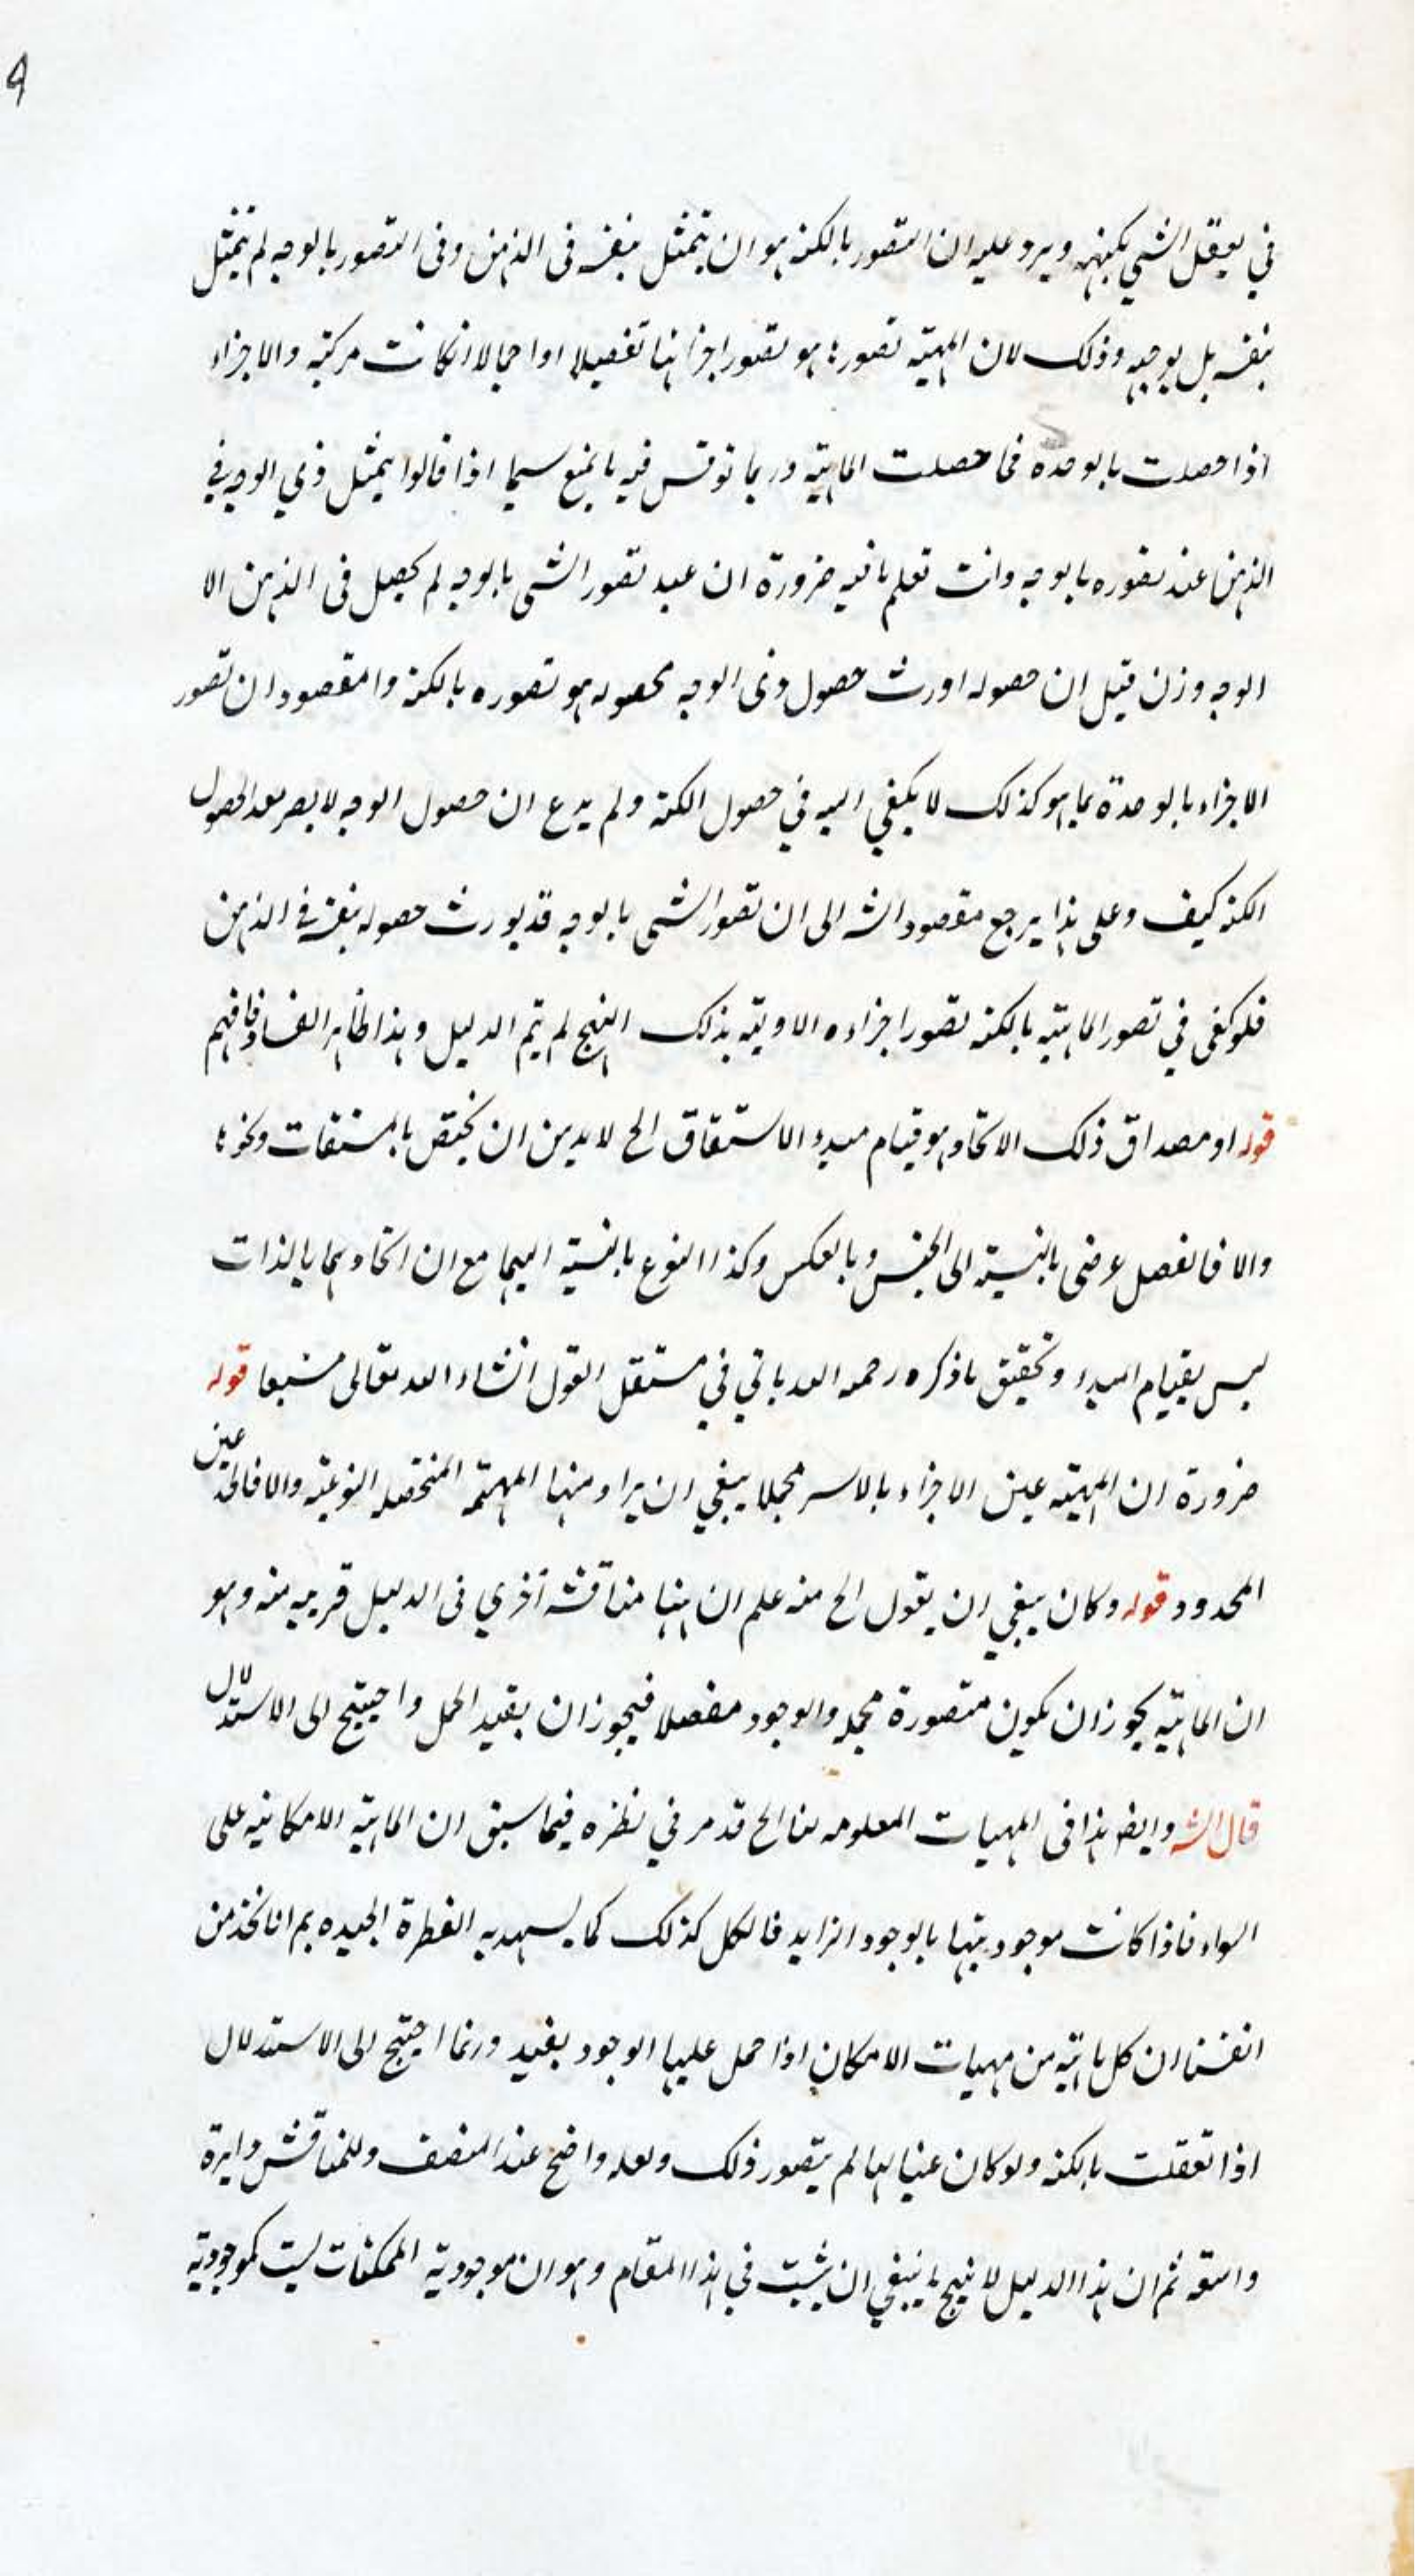 في يعقل الشي بكنهه ويرد عليه ان التصور بالكنه هو ان يتمثل بنفسه في الذهن وفي التصور بالوجه لم يتمثل
بنفسه بل بوجهه وذلك لان المهية تصورها هو تصور اجزائها تفصيلا او اجمالا انكانت مركبة والاجزاء
اذا حصلت بالوجه فما حصلت الماهية وربما نوقش فيه بالمنع سيما اذا قالوا بتمثل ذي الوجه في
الذهن عند تصوره بالوجه وانت تعلم بانه ضرورة ان عند تصور الشي بالوجه لم يحصل في الذهن الا
الوجه وان قيل ان حصوله اورث حصول ذي الوجه فحصوله هو تصوره بالكنه والمقصود ان تصور
الاجزاء بالوجه بما هو كذلك لا يكفي البته في حصول الكنه ولم يدع ان حصول الوجه لا يصير معد الحصول
الكنه كيف وعلى هذا يرجع مقصود الشه الى ان تصور الشي بالوجه قد يورث حصوله بنفسه في الذهن
فلو كفى في تصور الماهية بالكنه تصور اجزاءه الاولية بذلك النهج لم يتم الدليل وهذا ظاهر الفساد فافهم
قوله او مصداق ذلك الاتحاد هو قيام مبدء الاشتقاق الح لا بد من ان يختص بالمشتقات ونحوها
والا فالفصل عرضي بالنسبة الى الجنس وبالعكس وكذا النوع بالنسبة اليهما مع ان اتحادهما بالذات
ليس بقيام المبدء وتحقيق ما ذكره رحمه الله ياتي في مستقل القول انشاء الله تعالى مشبعا قوله
ضرورة ان المهية عين الاجزاء بالاسر مجملا ينبغي ان يراد منها المهية المتحصلة النوعية والا فالحد عين
المحدود قوله وكان ينبغي ان يقول الح منه علم ان ههنا مناقشة اخري في الدليل قريبه منه وهو
ان الماهية يجوز ان يكون متصورة مجملة والوجود مفصلا فيجوز ان يفيد الحمل واحتيج الى الاستدلال
قال الشه وايضا هذا في المهيات المعلومه لنا الح قد مر في نظره فيما سبق ان الماهية الامكانيه على
السواء فاذا كانت موجوديتها بالوجود الزايد فالكل كذلك كما يشهد به الفطرة الجيده ثم انا نجد من
انفسنا ان كل ماهية من مهيات الامكان اذا حمل عليها الوجود يفيد وربما احتيج الى الاستدلال
اذا تعقلت بالكنه ولو كان عينا لها لم يتصور ذلك ولعله واضح عند المنصف وللمناقش دايرة
واسعة ثم ان هذا الدليل لا ينتج ما ينبغي ان يثبت في هذا المقام وهو ان موجودية الممكنات ليست كموجودية